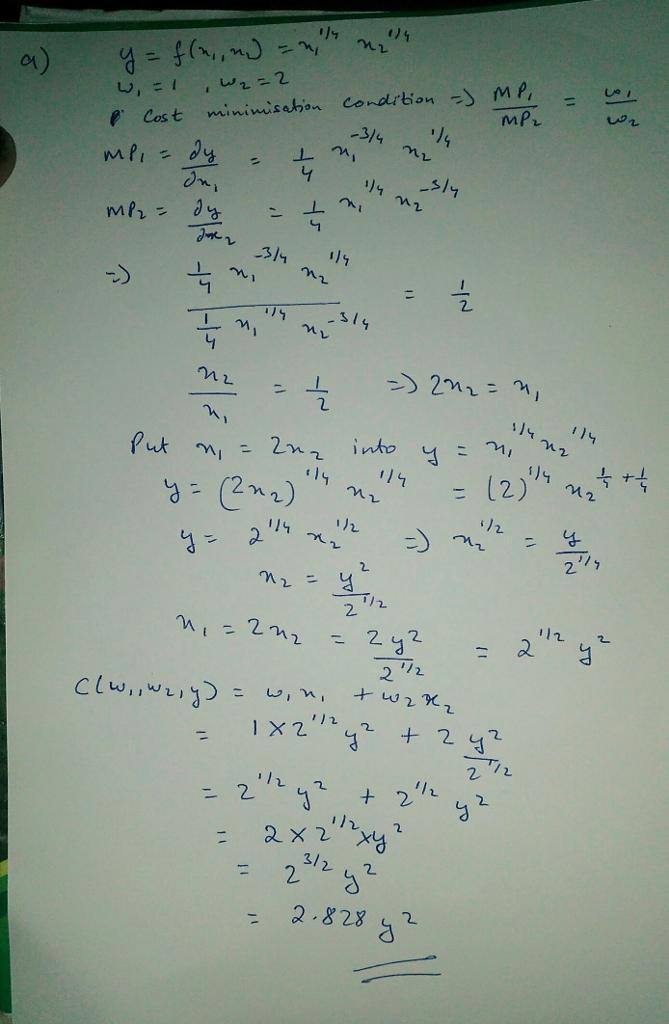 a) y = f(x₁, x₂) = x₁^1/4 x₂^1/4
w₁ = 1 , w₂ = 2
Cost minimisation condition => MP₁/MP₂ = w₁/w₂
MP₁ = ∂y/∂x₁ = 1/4 x₁^-3/4 x₂^1/4
MP₂ = ∂y/∂x₂ = 1/4 x₁^1/4 x₂^-3/4
=> (1/4 x₁^-3/4 x₂^1/4)/(1/4 x₁^1/4 x₂^-3/4) = 1/2
x₂/x₁ = 1/2 => 2x₂ = x₁
Put x₁ = 2x₂ into y = x₁^1/4 x₂^1/4
y = (2x₂)^1/4 x₂^1/4 = (2)^1/4 x₂^1/4 + 1/4
y = 2^1/4 x₂^1/2 => x₂^1/2 = y/2^1/4
x₂ = y²/2^1/2
x₁ = 2x₂ = 2y²/2^1/2 = 2^1/2 y²
C(w₁, w₂, y) = w₁x₁ + w₂x₂
= 1 × 2^1/2 y² + 2 y²/2^1/2
= 2^1/2 y² + 2^1/2 y²
= 2 × 2^1/2 × y²
= 2^3/2 y²
= 2.828 y²